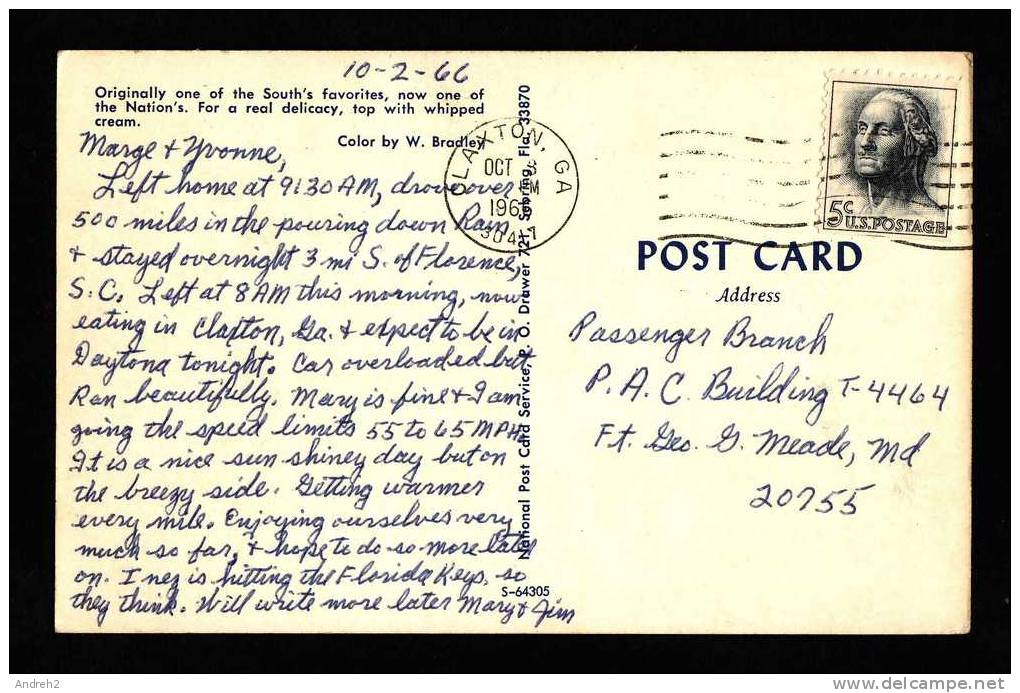 10-2-66
Originally one of the South's favorites, now one of
the Nation's. For a real delicacy, top with whipped
cream.
Color by W. Bradley
Marge + Yvonne,
Left home at 9:30 AM, drove over
500 miles in the pouring down Rain
+ stayed overnight 3 mi S. of Florence,
S.C. Left at 8 AM this morning, now
eating in Claxton, Ga. + expect to be in
Daytona tonight. Car overloaded but
Ran beautifully. Mary is fine + I am
going the speed limits 55 to 65 MPH.
It is a nice sun shiney day but on
the breezy side. Getting warmer
every mile. Enjoying ourselves very
much so far, + hope to do so more later
on. Inez is hitting the Florida Keys, so
they think. Will write more later Mary + Jim
S-64305
National Post Card Service, P. O. Drawer 721, Sebring, Fla. 33870
CLAXTON, GA
OCT 3
PM
196
304
5c
U.S. POSTAGE
POST CARD
Address
Passenger Branch
P. A. C. Building T-4464
Ft. Geo. G. Meade, Md
20755
Andreh2
www.delcampe.net